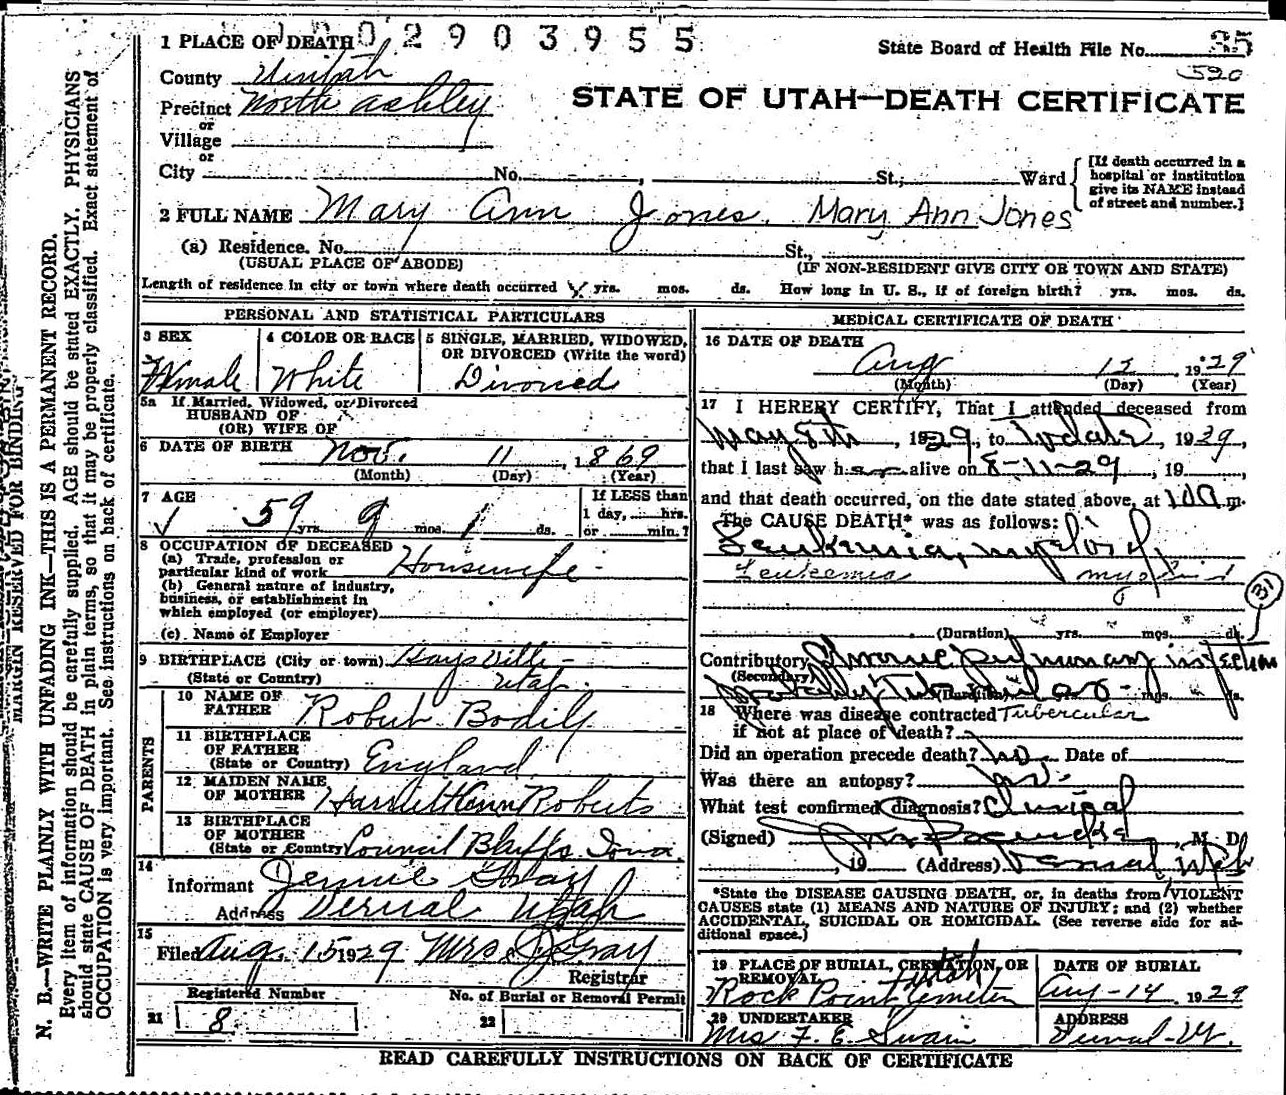 1 PLACE OF DEATH 1002903955
State Board of Health File No. 85
520
County Uintah
Precinct North Ashley
STATE OF UTAH—DEATH CERTIFICATE
or
Village
or
City No. , St.; Ward
[If death occurred in a hospital or institution give its NAME instead of street and number.]
2 FULL NAME Mary Ann Jones. Mary Ann Jones
(a) Residence. No. St.,
(USUAL PLACE OF ABODE) (IF NON-RESIDENT GIVE CITY OR TOWN AND STATE)
Length of residence in city or town where death occurred yrs. mos. ds. How long in U. S., if of foreign birth? yrs. mos. ds.
PERSONAL AND STATISTICAL PARTICULARS
3 SEX
Female
4 COLOR OR RACE
White
5 SINGLE, MARRIED, WIDOWED, OR DIVORCED (Write the word)
Divorced
5a If Married, Widowed, or Divorced
HUSBAND OF
(OR) WIFE OF
6 DATE OF BIRTH Nov. 11, 1869
(Month) (Day) (Year)
7 AGE
59 yrs. 9 mos. 1 ds.
If LESS than
1 day, hrs.
or min.?
8 OCCUPATION OF DECEASED
(a) Trade, profession or
particular kind of work Housewife
(b) General nature of industry,
business, or establishment in
which employed (or employer)
(c) Name of Employer
9 BIRTHPLACE (City or town) Haysville
(State or Country) Utah
PARENTS
10 NAME OF
FATHER Robert Bodily
11 BIRTHPLACE
OF FATHER
(State or Country) England
12 MAIDEN NAME
OF MOTHER Harriet Ann Roberts
13 BIRTHPLACE
OF MOTHER
(State or Country) Council Bluffs Iowa
14
Informant Jennie Gray
Address Vernal Utah
15
Filed Aug. 15 1929 Mrs J Gray
Registrar
Registered Number
21 8
No. of Burial or Removal Permit
22
MEDICAL CERTIFICATE OF DEATH
16 DATE OF DEATH
Aug 12, 1929
(Month) (Day) (Year)
17 I HEREBY CERTIFY, That I attended deceased from
May 8th, 1929, to Todate, 1929,
that I last saw her alive on 8-11-29, 19
and that death occurred, on the date stated above, at m.
The CAUSE DEATH* was as follows:
Leukemia, myeloid,
Leukemia myeloid
(Duration) yrs. mos. ds.
31
Contributory Chronic pulmonary infection
(Secondary)
Probably Tubercular
(Duration) mos. ds.
18 Where was disease contracted Tubercular
if not at place of death?
Did an operation precede death? no Date of
Was there an autopsy? no.
What test confirmed diagnosis? Clinical
(Signed) , M. D.
, 19 (Address) Vernal, Utah
*State the DISEASE CAUSING DEATH, or, in deaths from VIOLENT
CAUSES state (1) MEANS AND NATURE OF INJURY; and (2) whether
ACCIDENTAL, SUICIDAL OR HOMICIDAL. (See reverse side for ad-
ditional space.)
19 PLACE OF BURIAL, CREMATION, OR
REMOVAL Utah
Rock Point Cemetery
DATE OF BURIAL
Aug-14, 1929
20 UNDERTAKER
Mrs F. E. Swain
ADDRESS
Vernal-Ut.
READ CAREFULLY INSTRUCTIONS ON BACK OF CERTIFICATE
MARGIN RESERVED FOR BINDING
N. B.—WRITE PLAINLY WITH UNFADING INK—THIS IS A PERMANENT RECORD.
Every item of information should be carefully supplied. AGE should be stated EXACTLY. PHYSICIANS
should state CAUSE OF DEATH in plain terms, so that it may be properly classified. Exact statement of
OCCUPATION is very important. See instructions on back of certificate.